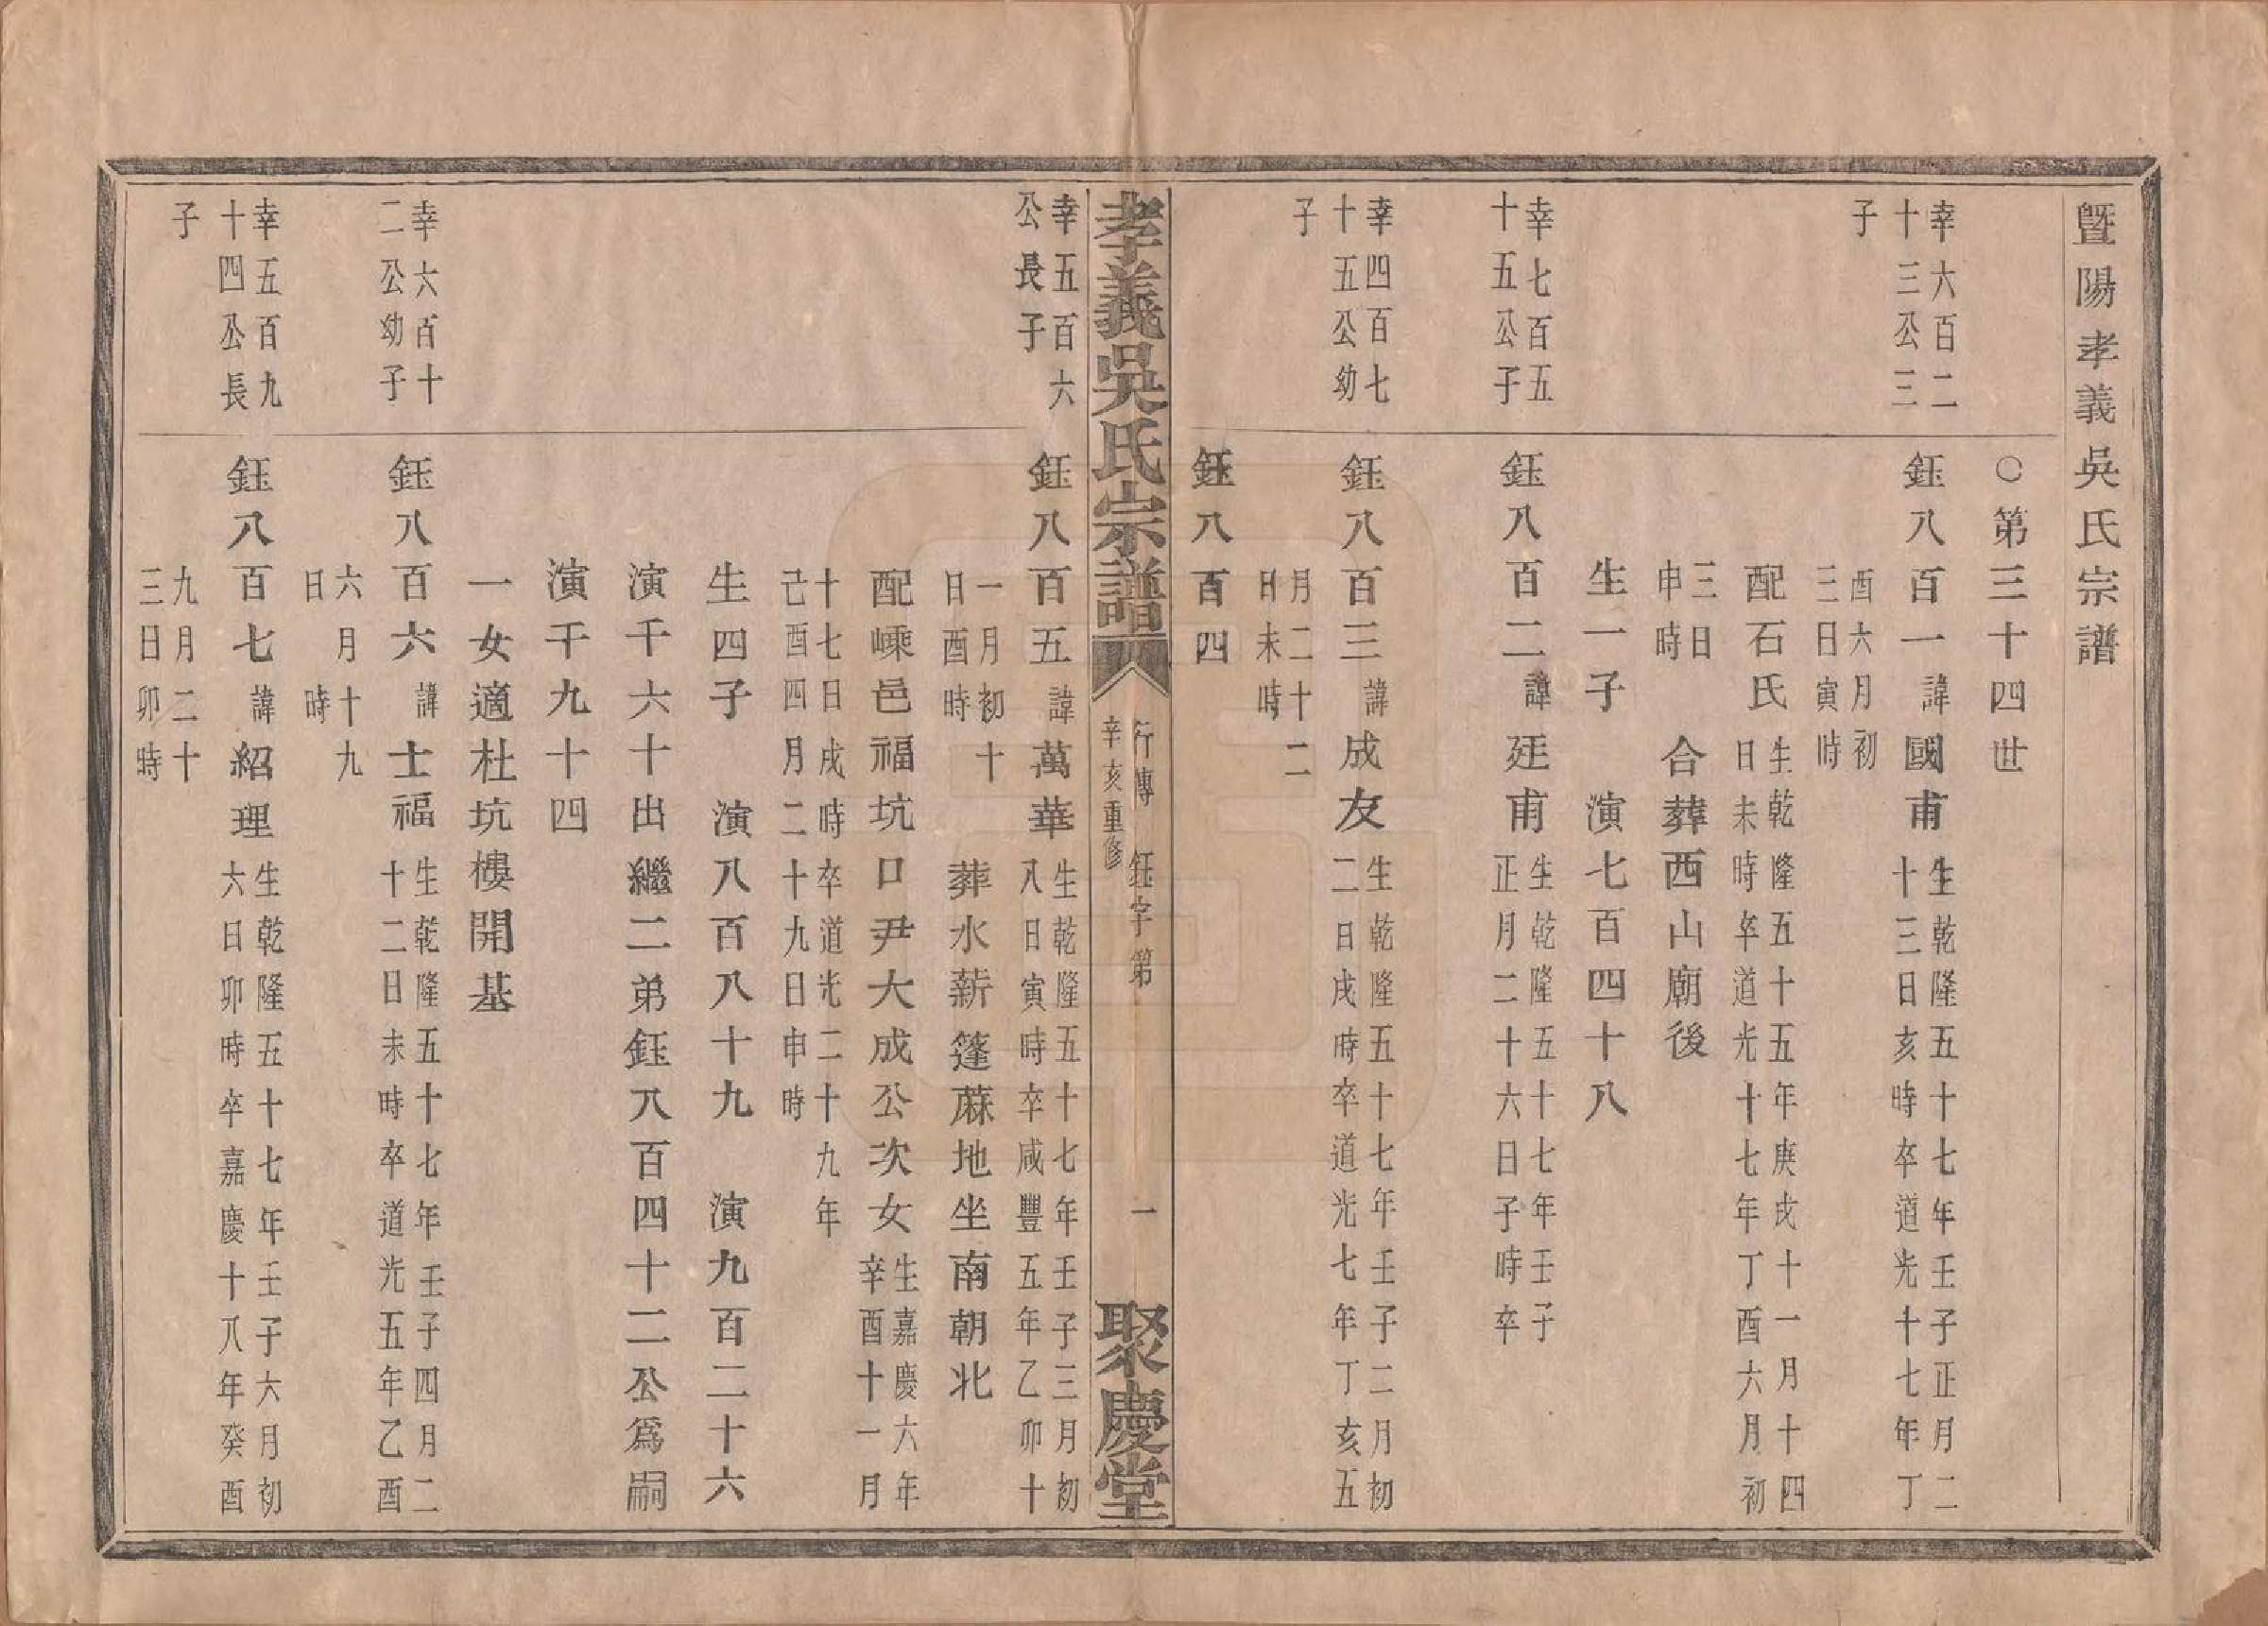 暨陽孝義吳氏宗譜
○第三十四世
幸六百二
十三公三
子
鈺八百一諱國甫
生乾隆五十七年壬子正月二
十三日亥時卒道光十七年丁
酉六月初
三日寅時
配石氏
生乾隆五十五年庚戌十一月十四
日未時卒道光十七年丁酉六月初
三日
申時
合葬西山廟後
生一子 演七百四十八
幸七百五
十五公子
鈺八百二諱廷甫
生乾隆五十七年壬子
正月二十六日子時卒
幸四百七
十五公幼
子
鈺八百三諱成友
生乾隆五十七年壬子二月初
二日戌時卒道光七年丁亥五
月二十二
日未時
鈺八百四
孝義吳氏宗譜
行傳 鈺字第 一
辛亥重修
聚慶堂
幸五百六
公長子
鈺八百五諱萬華
生乾隆五十七年壬子三月初
八日寅時卒咸豐五年乙卯十
一月初十
日酉時
葬水薪篷蔴地坐南朝北
配嵊邑福坑口尹大成公次女
生嘉慶六年
辛酉十一月
十七日戌時卒道光二十九年
己酉四月二十九日申時
生四子 演八百八十九 演九百二十六
演千六十出繼二弟鈺八百四十二公爲嗣
演千九十四
一女適杜坑樓開基
幸六百十
二公幼子
鈺八百六諱士福
生乾隆五十七年壬子四月二
十二日未時卒道光五年乙酉
六月十九
日 時
幸五百九
十四公長
子
鈺八百七諱紹理
生乾隆五十七年壬子六月初
六日卯時卒嘉慶十八年癸酉
九月二十
三日卯時